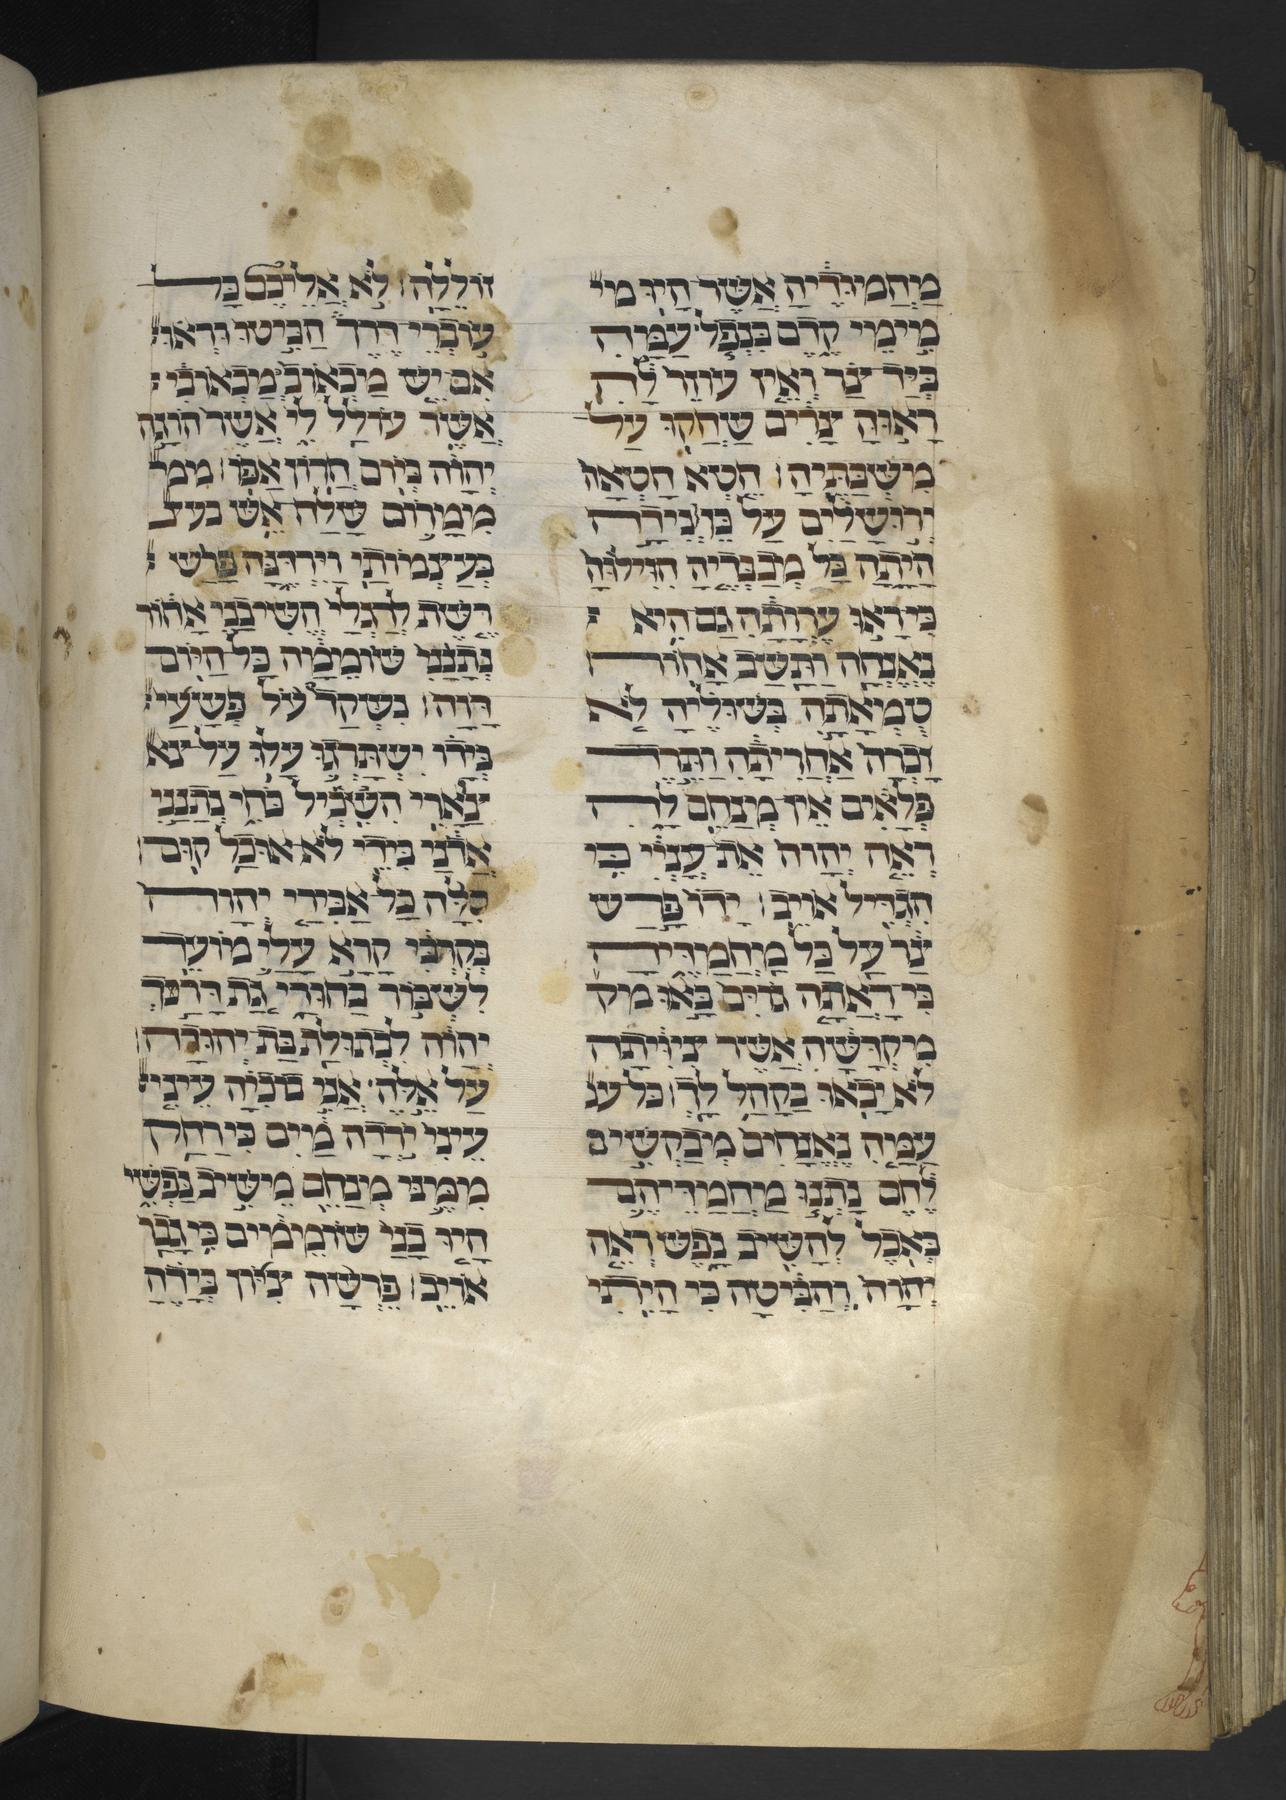 מַחֲמוּדֶיהָ אֲשֶׁר הָיוּ מי
מִימֵי קֶדֶם בִּנְפֹל עַמָּהּ
בְּיַד צַר וְאֵין עוֹזֵר לָהּ
רָאוּהָ צָרִים שָׂחֲקוּ עַל
מִשְׁבַּתֶּיהָ׃ חֵטְא חָטְאָה
יְרוּשָׁלַיִם עַל כֵּן לְנִידָה
הָיָתָה כָּל מְכַבְּדֶיהָ הִזִּילוּהָ
כִּי רָאוּ עֶרְוָתָהּ גַּם הִיא
נֶאֶנְחָה וַתָּשָׁב אָחוֹר׃
טֻמְאָתָהּ בְּשׁוּלֶיהָ לֹא
זָכְרָה אַחֲרִיתָהּ וַתֵּרֶד
פְּלָאִים אֵין מְנַחֵם לָהּ
רְאֵה יְהוָה אֶת עָנְיִי כִּי
הִגְדִּיל אוֹיֵב׃ יָדוֹ פָּרַשׂ
צָר עַל כָּל מַחֲמַדֶּיהָ
כִּי רָאֲתָה גוֹיִם בָּאוּ מק
מִקְדָּשָׁהּ אֲשֶׁר צִוִּיתָה
לֹא יָבֹאוּ בַקָּהָל לָךְ׃ כל ע
עַמָּהּ נֶאֱנָחִים מְבַקְשִׁים
לֶחֶם נָתְנוּ מַחֲמַדֵּיהֶם
בְּאֹכֶל לְהָשִׁיב נָפֶשׁ רְאֵה
יְהוָה וְהַבִּיטָה כִּי הָיִיתִי
זוֹלֵלָה׃ לֹא אֲלֵיכֶם כָּל
עוֹבְרֵי דֶרֶךְ הַבִּיטוּ וּרְאוּ
אִם יֵשׁ מַכְאוֹב כְּמַכְאוֹבִי
אֲשֶׁר עוֹלַל לִי אֲשֶׁר הוֹגָה
יְהוָה בְּיוֹם חֲרוֹן אַפּוֹ׃ ממר
מִמָּרוֹם שָׁלַח אֵשׁ בעצ
בְּעַצְמוֹתַי וַיִּרְדֶּנָּה פָּרַשׂ
רֶשֶׁת לְרַגְלַי הֱשִׁיבַנִי אָחוֹר
נְתָנַנִי שׁוֹמֵמָה כָּל הַיּוֹם
דָּוָה׃ נִשְׂקַד עֹל פְּשָׁעַי
בְּיָדוֹ יִשְׂתָּרְגוּ עָלוּ עַל צוא
צַוָּארִי הִכְשִׁיל כֹּחִי נְתָנַנִי
אֲדֹנָי בִּידֵי לֹא אוּכַל קוּם׃
סִלָּה כָל אַבִּירַי יְהוָה
בְּקִרְבִּי קָרָא עָלַי מוֹעֵד
לִשְׁבּוֹר בַּחוּרָי גַּת דָּרַךְ
יְהוָה לִבְתוּלַת בַּת יְהוּדָה׃
עַל אֵלֶּה אֲנִי בוֹכִיָּה עֵינִי
עֵינִי יֹרְדָה מַּיִם כִּי רָחַק
מִמֶּנִּי מְנַחֵם מֵשִׁיב נַפְשִׁי
הָיוּ בָנַי שׁוֹמֵמִים כִּי גָבַר
אוֹיֵב׃ פֵּרְשָׂה צִיּוֹן בְּיָדֶיהָ